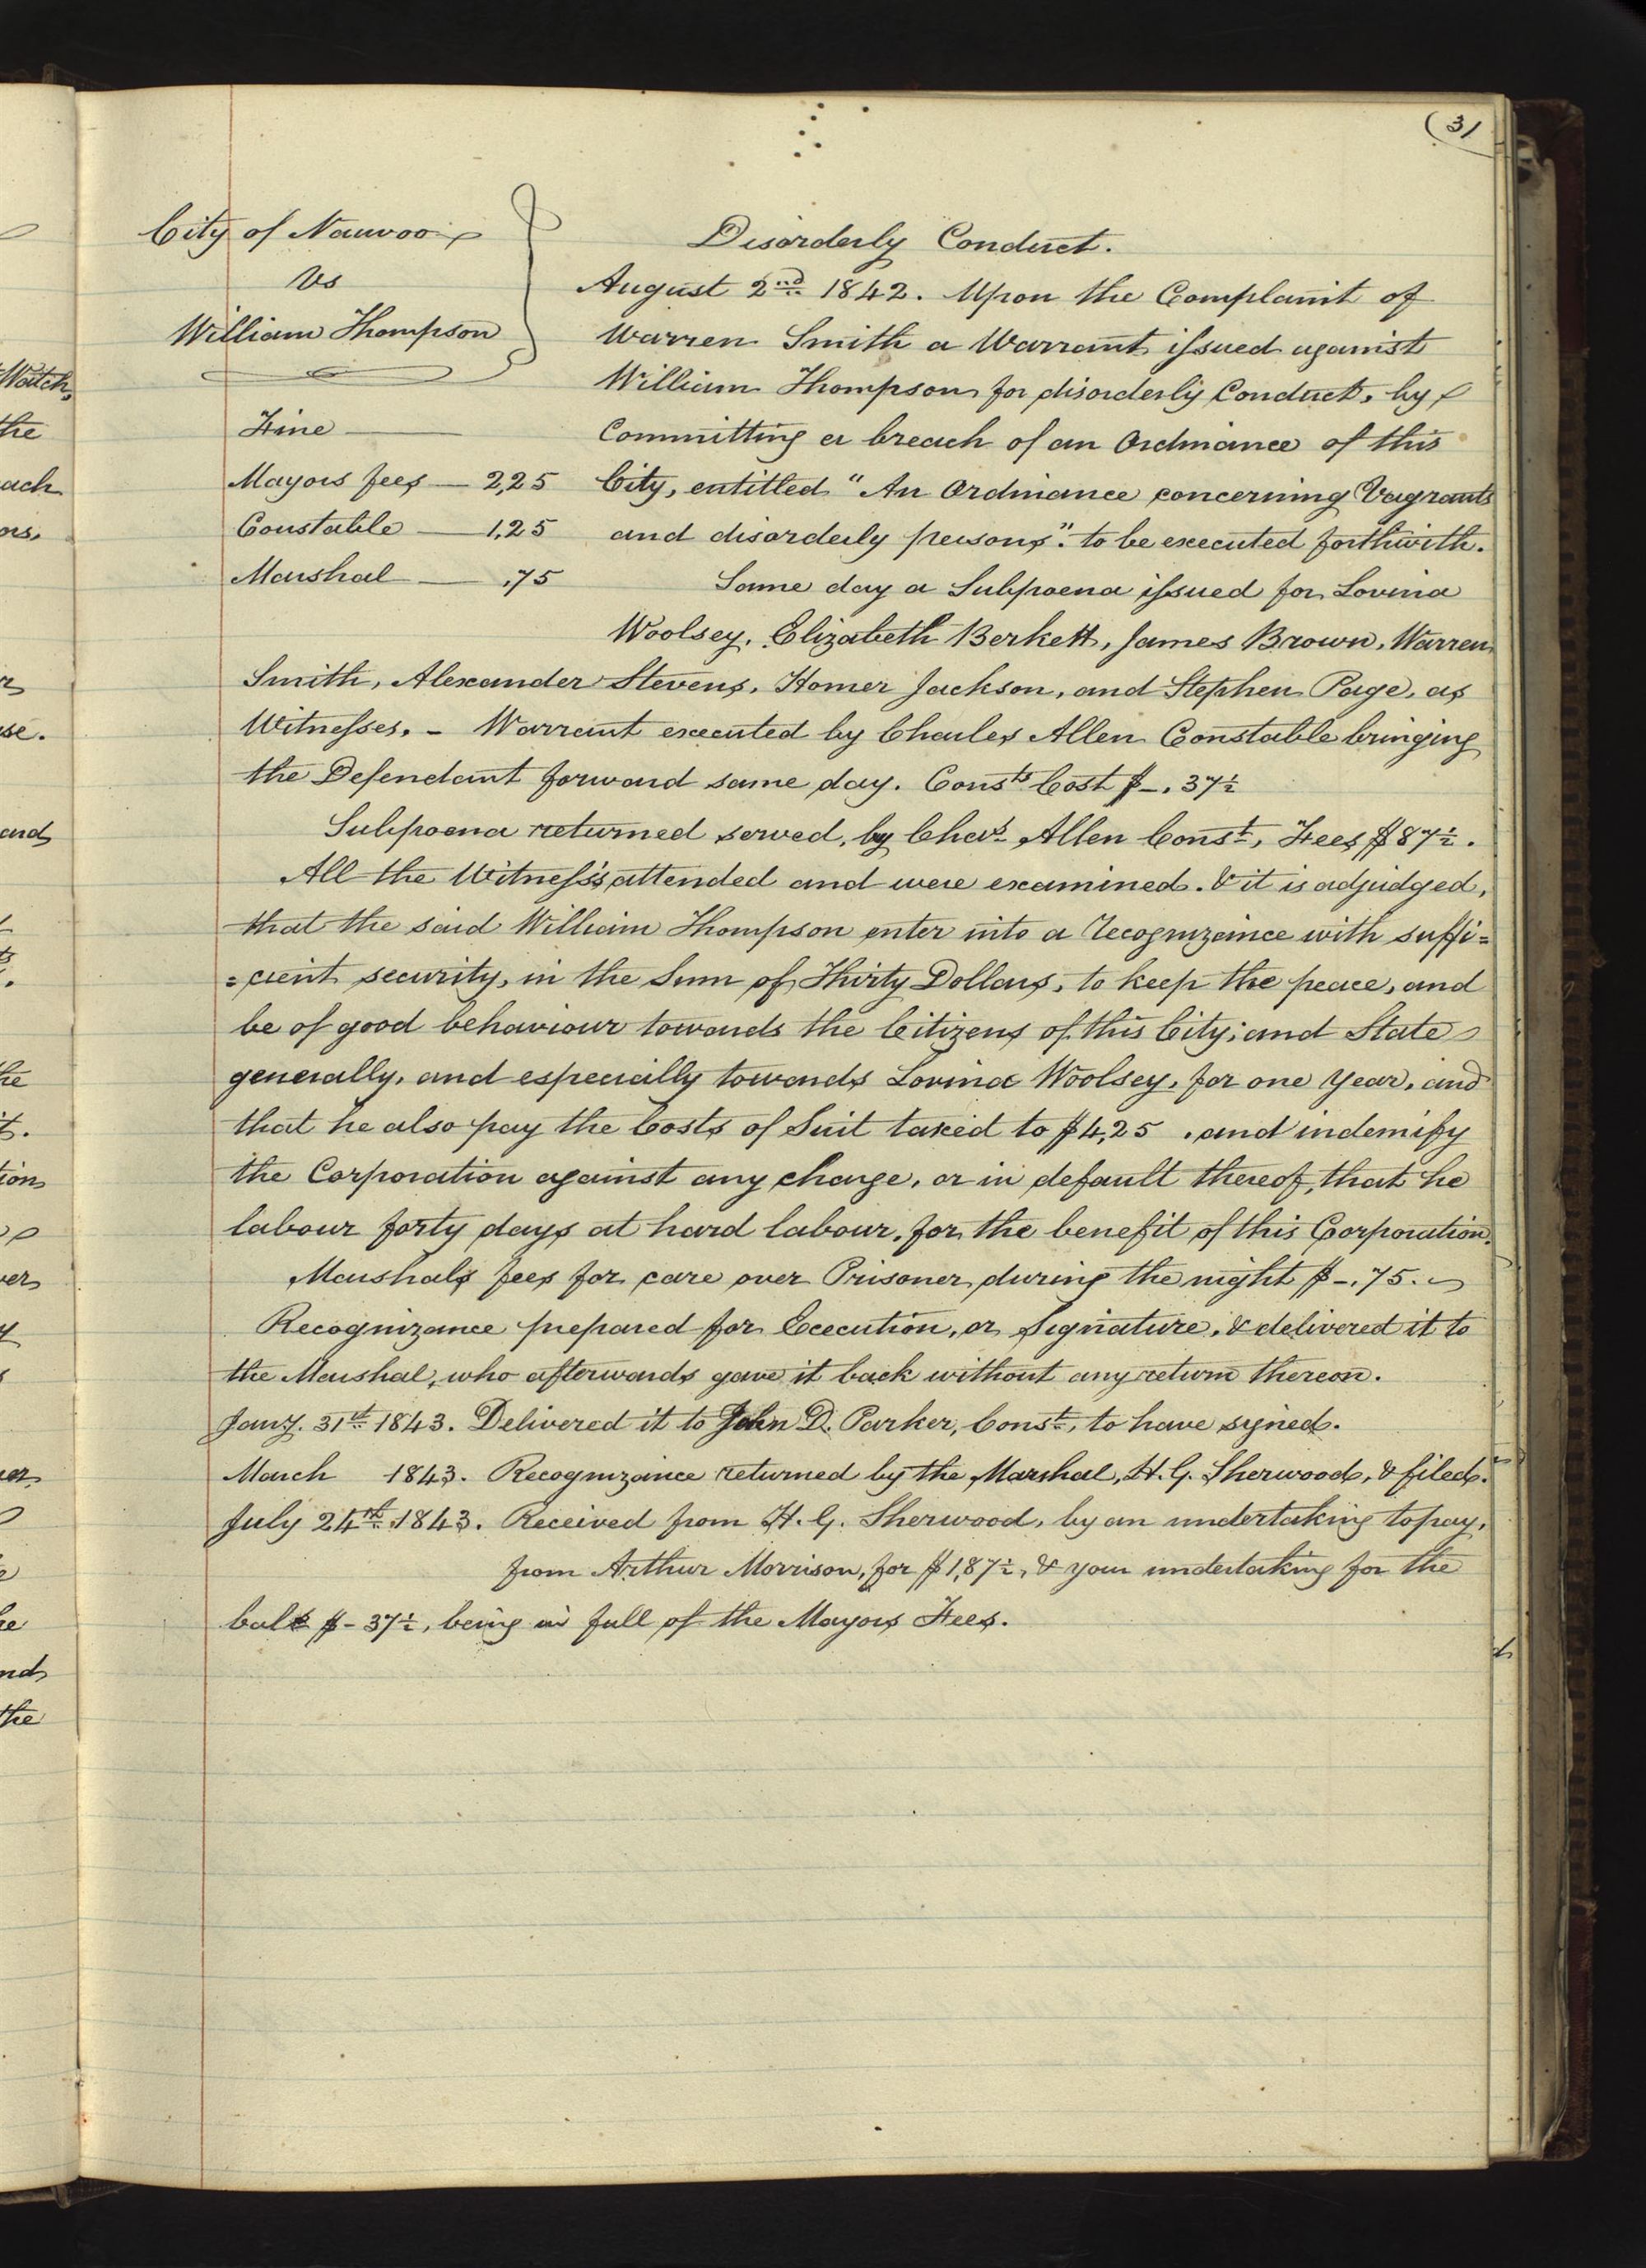 (31
City of Nauvoo
vs
William Thompson
Fine —
Mayors fees — 2,25
Constable — 1,25
Marshal — ,75
Disorderly Conduct.
August 2nd. 1842. Upon the Complaint of
Warren Smith a Warrant issued against
William Thompson for disorderly Conduct, by
Committing a breach of an Ordinance of this
City, entitled "An Ordinance concerning Vagrants
and disorderly persons". to be executed forthwith.
Same day a Subpoena issued for Lovina
Woolsey, Elizabeth Berkett, James Brown, Warren
Smith, Alexander Stevens, Homer Jackson, and Stephen Page, as
Witnesses. – Warrant executed by Charles Allen Constable bringing
the Defendant forward same day. Consts. Cost $–.37½
Subpoena returned served, by Chas. Allen Const., Fees $87½.
All the Witness's attended and were examined. & it is adjudged,
that the said William Thompson enter into a recognizeince with suffi=
=cient security, in the Sum of Thirty Dollars, to keep the peace, and
be of good behaviour towards the Citizens of this City; and State
generally, and especially towards Lovina Woolsey, for one year, and
that he also pay the Costs of Suit taxed to $4,25 . and indemify
the Corporation against any charge, or in default thereof, that he
labour forty days at hard labour, for the benefit of this Corporation.
Marshals fees for care over Prisoner during the night $–.75.
Recognizance prepared for Execution, or Signature, & delivered it to
the Marshal, who afterwards gave it back without any return thereon.
Jany. 31st. 1843. Delivered it to John D. Parker, Const., to have signed.
March 1843. Recognizance returned by the Marshal, H. G. Sherwood, & filed.
July 24th. 1843. Received from H. G. Sherwood, by an undertaking to pay,
from Arthur Morrison, for $1,87½, & your undertaking for the
bale $–37½, being in full of the Mayors Fees.
Watch,
the
ach
ors.
se.
and
he
it.
tion
ver
he
nd
the